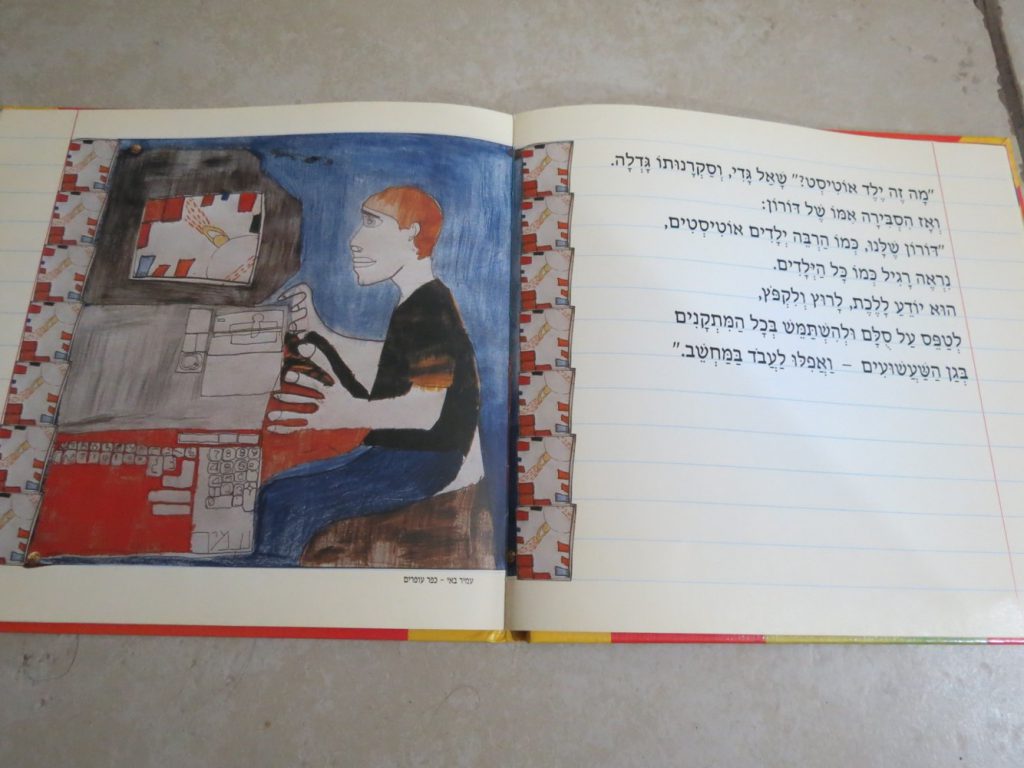 "מָה זֶה יֶלֶד אוֹטִיסְט?" שָׁאַל גָּדִי, וְסַקְרָנוּתוֹ גָּדְלָה.
וְאָז הִסְבִּירָה אִמּוֹ שֶׁל דּוֹרוֹן:
"דּוֹרוֹן שֶׁלָּנוּ, כְּמוֹ הַרְבֵּה יְלָדִים אוֹטִיסְטִים,
נִרְאֶה רָגִיל כְּמוֹ כָּל הַיְּלָדִים.
הוּא יוֹדֵעַ לָלֶכֶת, לָרוּץ וְלִקְפֹּץ,
לְטַפֵּס עַל סֻלָּם וּלְהִשְׁתַּמֵּשׁ בְּכָל הַמִּתְקָנִים
בְּגַן הַשַּׁעֲשׁוּעִים – וַאֲפִלּוּ לַעֲבֹד בַּמַּחְשֵׁב."
עמיר באי - כפר עופרים
עמיר